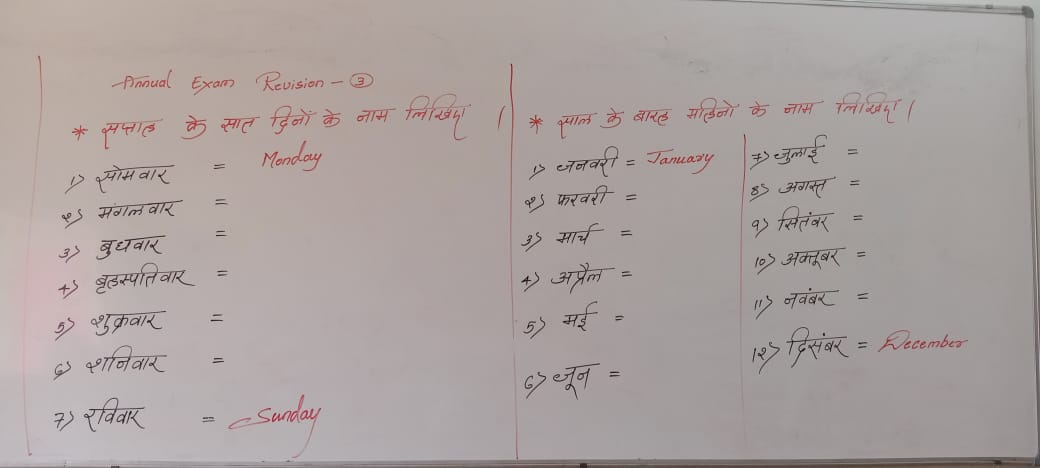 Annual Exam Revision - ③
* सप्ताह के सात दिनों के नाम लिखिए।
१) सोमवार = Monday
२) मंगलवार =
३) बुधवार =
४) बृहस्पतिवार =
5) शुक्रवार =
६) शनिवार =
7) रविवार = Sunday
* साल के बारह महिनों के नाम लिखिए।
१) जनवरी = January
२) फरवरी =
३) मार्च =
४) अप्रैल =
5) मई =
६) जून =
7) जुलाई =
8) अगस्त =
9) सितंबर =
10) अक्तूबर =
11) नवंबर =
1२) दिसंबर = December